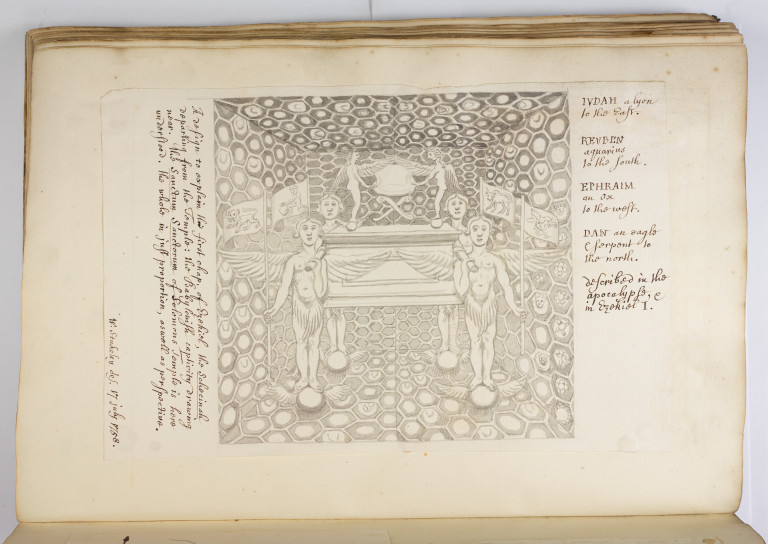 A design to explain the first chap. of Ezekiel, the Schecinah
departing from the Temple: the Babylonish captivity drawing
near. the Sanctum Sanctorum of Solomons Temple is here
understood. the whole in just proportion, as well as perspective.
W. Stukeley del. 17 july 1758.
IVDAH a lyon
to the East.
REVBEN
aquarius
to the south.
EPHRAIM
an ox
to the west.
DAN an eagle
& serpent to
the north.
described in the
apocalypse, &
in Ezekiel I.